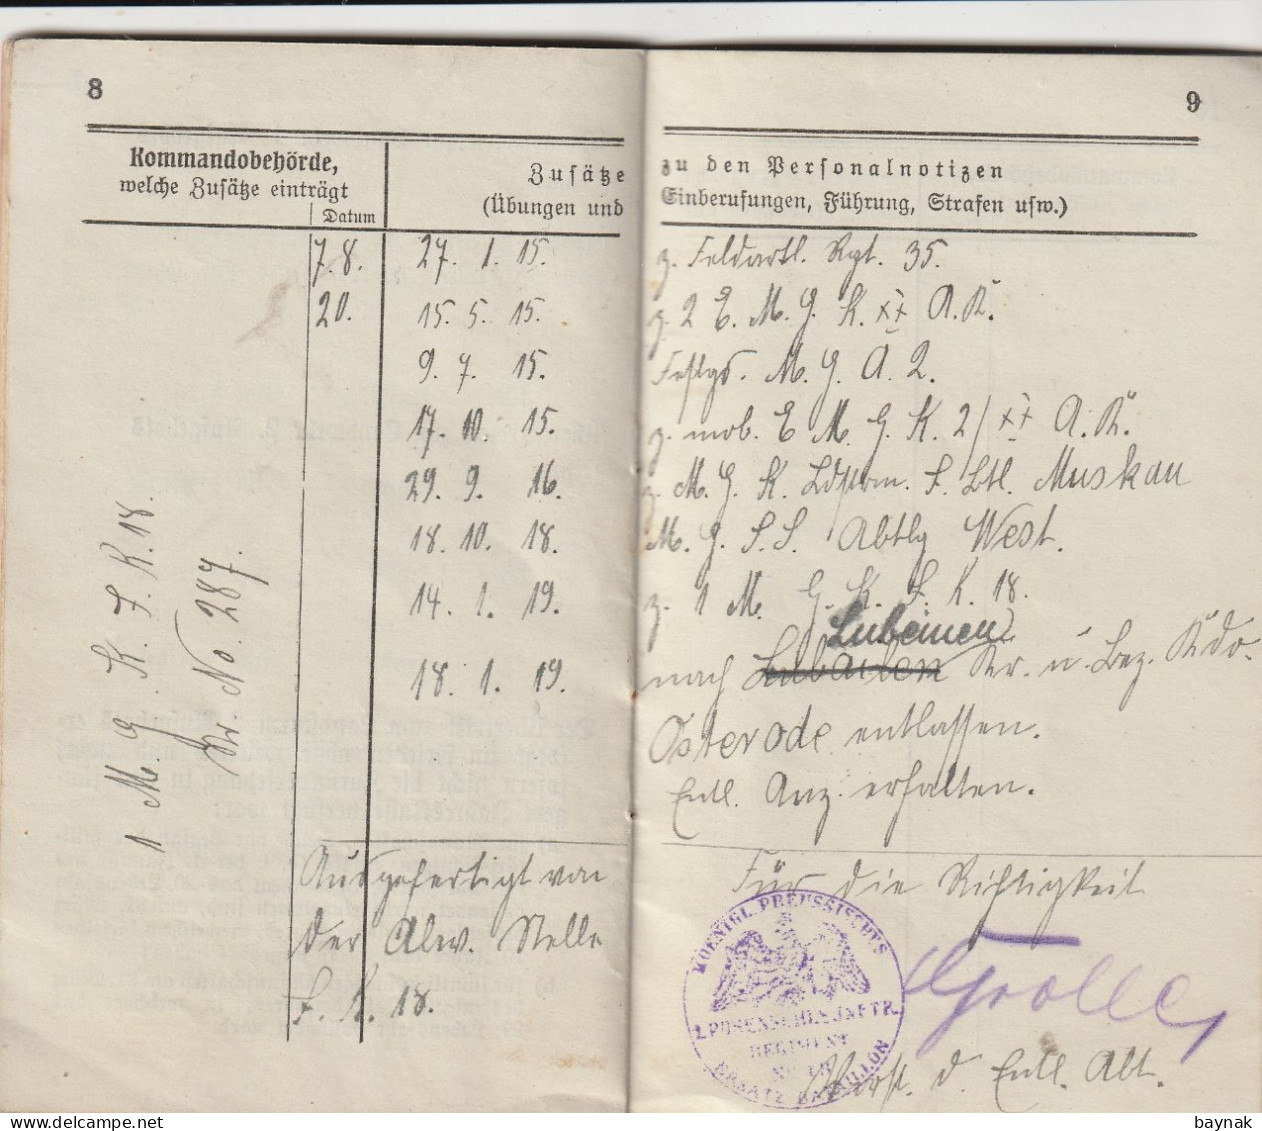 8
Kommandobehörde,
welche Zusätze einträgt
Datum
Zusätze
(Übungen und
7. 8.
20.
27. 1. 15.
15. 5. 15.
9. 7. 15.
17. 10. 15.
29. 9. 16.
18. 10. 18.
14. 1. 19.
18. 1. 19.
1 M. G. K. F. R. 18.
No. 287.
Ausgefertigt von
der Abw. Stelle
18.
9
zu den Personalnotizen
Einberufungen, Führung, Strafen usw.)
z. Feldartl. Rgt. 35.
z. 2 E. M. G. K. XX A. K.
M. G. A. 2.
z. mob. E M. G. K. 2/ XX A. K.
z. M. G. K. Ldstrm. Btl. Muskau
M. G. S. S. Abtlg West.
z. 1 M. G. K. F. R. 18.
Lubainen
nach Kr. u. Bez. Kdo.
Osterode entlassen.
Entl. Anz. erhalten.
Für die Richtigkeit
KOENIGL. PREUSSISCHES
1. POSENSCHES INFTR.
REGIMENT
No 18
ERSATZ BATAILLON
d. Entl. Abt.
baynak